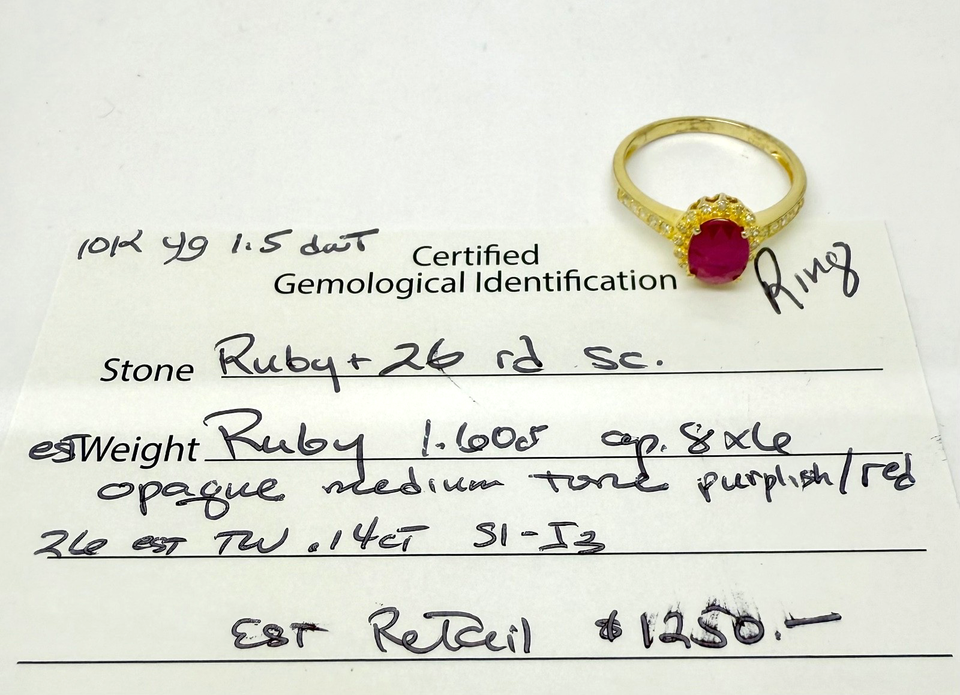 10K yg 1.5 dwT
Certified
Gemological Identification
Ring
Stone Ruby + 26 rd sc.
estWeight Ruby 1.60ct ap. 8x6
opaque medium tone purplish/red
26 est TW .14cT SI-I3
EST Retail $1250.—